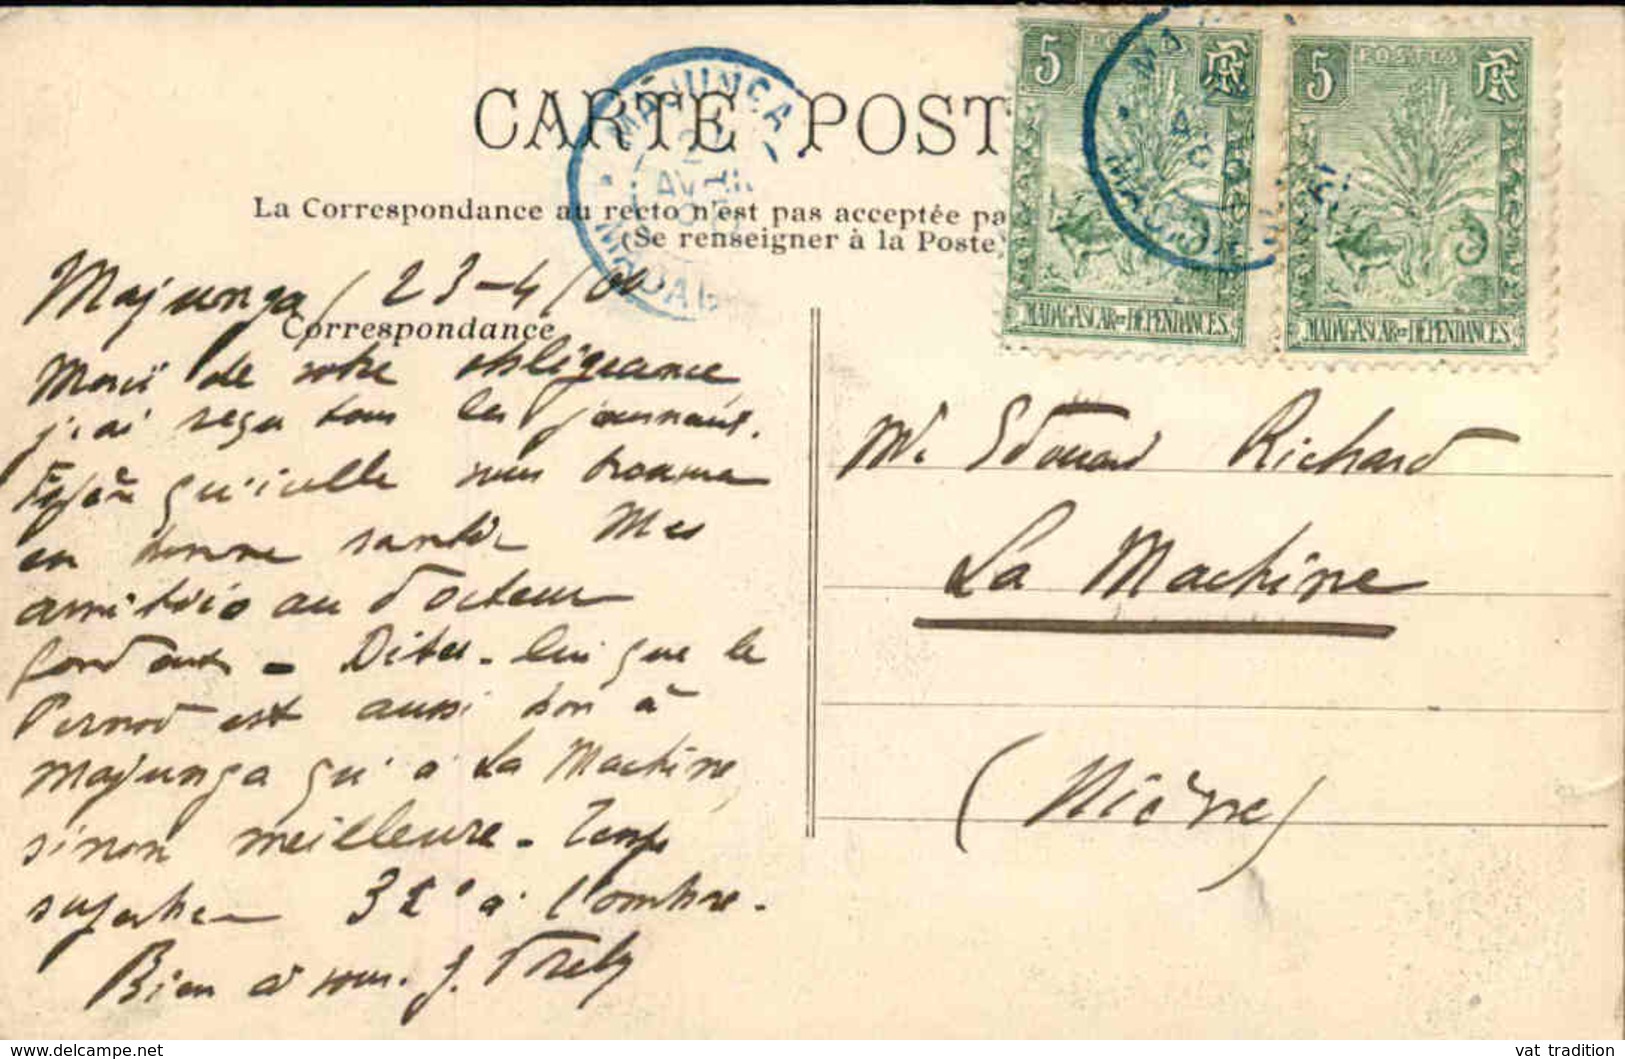 CARTE POST
La Correspondance au recto n'est pas acceptée pa
(Se renseigner à la Poste)
Correspondance
MAJUNGA
MADAG
5 POSTES RF
MADAGASCAR ET DÉPENDANCES
5 POSTES RF
MADAGASCAR ET DÉPENDANCES
Majunga, 23-4/06
Merci de votre obligeance
j'ai reçu tous les journaux.
qu'icelle vous trouvera
en bonne santé Mes
amitiés au docteur
Dites-lui que le
Pernod est aussi bon à
Majunga qu'à La Machine,
sinon meilleure. Temps
32° à l'ombre.
Bien à vous. J.
Mr Edouard Richard
La Machine
(Nièvre)
vat tradition
www.delcampe.net